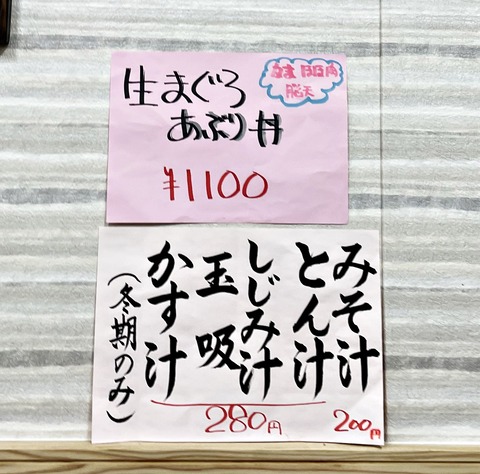 生まぐろ
あぶり丼
ほほ肉
脳天
¥1100
みそ汁
とん汁
しじみ汁
玉吸
かす汁
(冬期のみ)
280円
200円